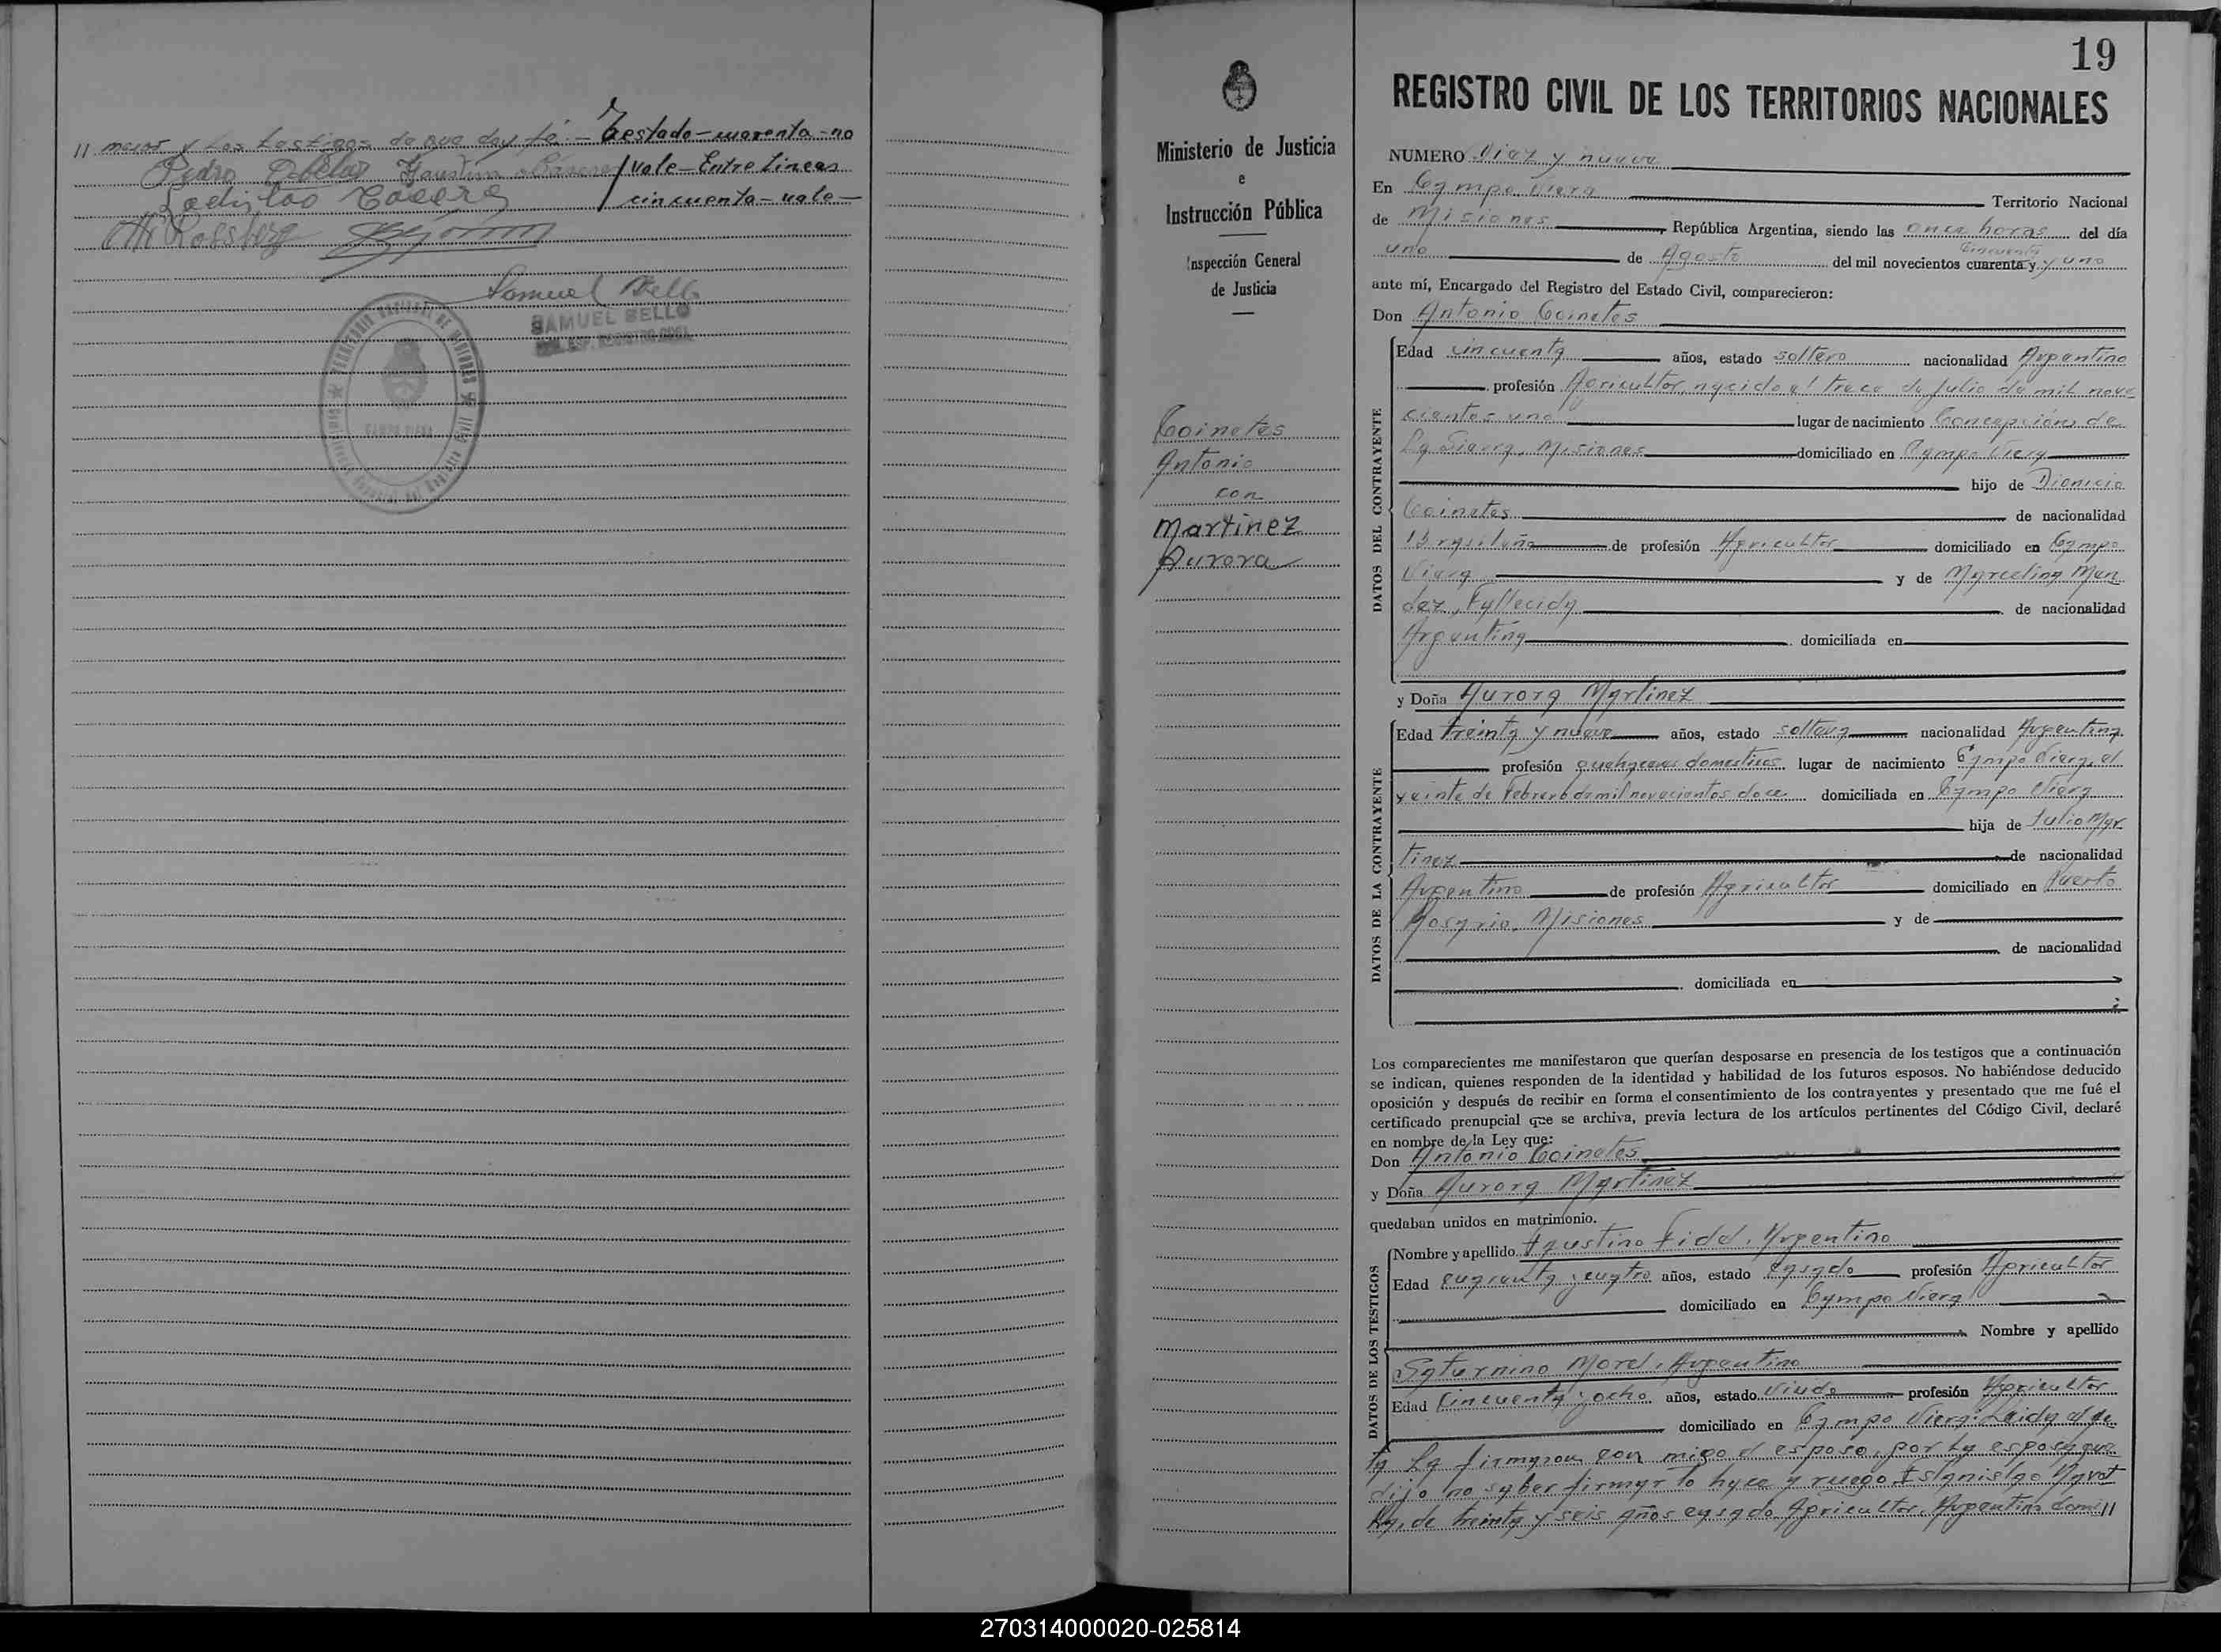 // menor y los testigos de que doy fé.- Testado-cuarenta-no
Pedro Faustina vale-Entre lineas
Ladislao cincuenta-vale-
Samuel Bello
SAMUEL BELLO
TERRITORIO NACIONAL DE MISIONES
CAMPO VIERA
19
REGISTRO CIVIL DE LOS TERRITORIOS NACIONALES
Ministerio de Justicia
e
Instrucción Pública
Inspección General
de Justicia
Coinetes
Antonio
con
Martinez
Aurora
NUMERO Diez y nueve
En Campo Viera Territorio Nacional
de Misiones República Argentina, siendo las once horas del día
cincuenta
uno de Agosto del mil novecientos cuarenta y y uno
ante mí, Encargado del Registro del Estado Civil, comparecieron:
Don Antonio Coinetes
DATOS DEL CONTRAYENTE
Edad cincuenta años, estado soltero nacionalidad Argentino
profesión Agricultor, nacido el trece de Julio de mil nove
cientos uno lugar de nacimiento Concepción de
La Sierra, Misiones domiciliado en Campo Viera
hijo de Dionicio
Coinetes de nacionalidad
Brasileña de profesión Agricultor domiciliado en Campo
Viera y de Marcelina Men
dez, Fallecida de nacionalidad
Argentina domiciliada en
y Doña Aurora Martinez
DATOS DE LA CONTRAYENTE
Edad treinta y nueve años, estado soltera nacionalidad Argentina
profesión quehaceres domesticos lugar de nacimiento Campo Viera, el
veinte de Febrero de mil novecientos doce domiciliada en Campo Viera
hija de Julio Mar
tinez de nacionalidad
Argentino de profesión Agricultor domiciliado en Puerto
Rosario, Misiones y de
de nacionalidad
domiciliada en
Los comparecientes me manifestaron que querían desposarse en presencia de los testigos que a continuación
se indican, quienes responden de la identidad y habilidad de los futuros esposos. No habiéndose deducido
oposición y después de recibir en forma el consentimiento de los contrayentes y presentado que me fué el
certificado prenupcial que se archiva, previa lectura de los artículos pertinentes del Código Civil, declaré
en nombre de la Ley que:
Don Antonio Coinetes
y Doña Aurora Martinez
quedaban unidos en matrimonio.
DATOS DE LOS TESTIGOS
Nombre y apellido Faustino Fidel, Argentino
Edad cuarenta y cuatro años, estado casado profesión Agricultor
domiciliado en Campo Viera
Nombre y apellido
Saturnino Morel, Argentino
Edad Cincuenta y ocho años, estado Viudo profesión Agricultor
domiciliado en Campo Viera; Leida el ac
ta la firmaron con migo el esposo, por la esposa que
dijo no saber firmar lo hace a ruego Estanislao
de treinta y seis años casado, Agricultor, Argentino domi//
270314000020-025814